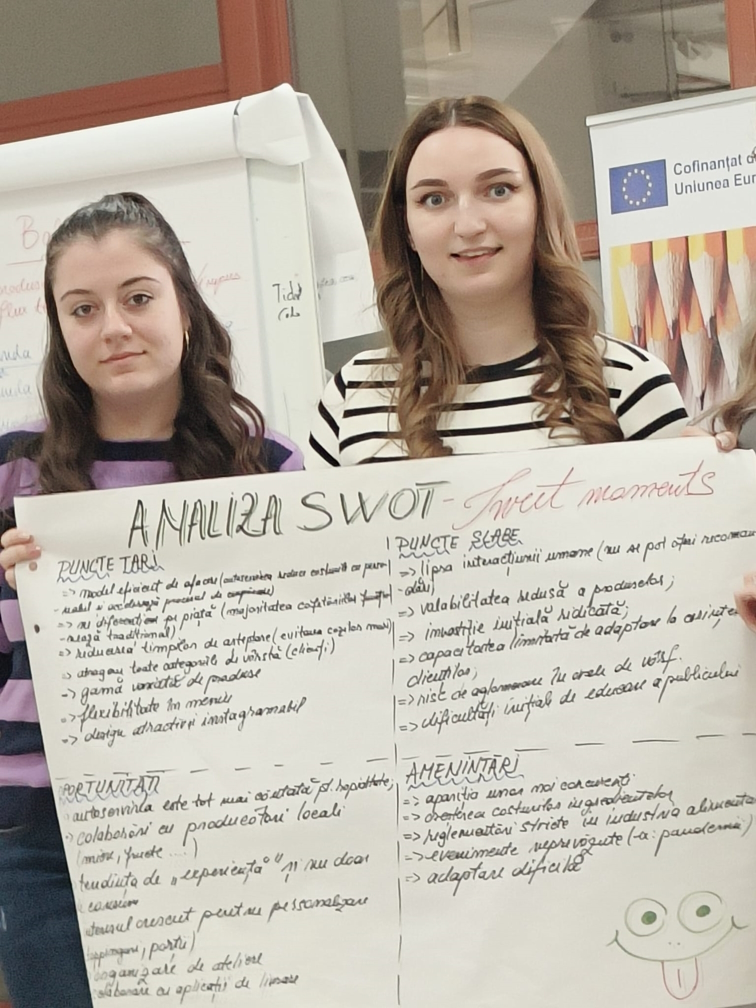 Cofinanțat d
Uniunea Eur
ANALIZA SWOT - Sweet moments
PUNCTE TARI
=> model eficient de afaceri (autoservirea reduce costurile cu perso-
-nalul și accelerează procesul de cumpărare)
=> ne diferențiem pe piață (majoritatea cofetăriilor funcțio-
-nează tradițional)
=> reducerea timpilor de așteptare (evitarea cozilor mari)
=> atragem toate categoriile de vârstă (clienți)
=> gamă variată de produse
=> flexibilitate în meniu
=> design atractiv și instagramabil
PUNCTE SLABE
=> lipsa interacțiunii umane (nu se pot oferi recoman
-dări)
=> valabilitatea redusă a produselor;
=> investiție inițială ridicată;
=> capacitatea limitată de adaptare la
clienților;
=> risc de aglomerare în orele de vârf.
=> dificultăți inițiale de educare a publicului
PORTUNITĂȚI
autoservirea este tot mai căutată pt. rapiditate;
colaborări cu producători locali
(miere, fructe ...)
tendința de „experiență" și nu doar
teresul crescut pentru personalizare
, porții)
organizare de ateliere
colaborare cu aplicații de livrare
AMENINȚĂRI
=> apariția unor noi concurenți
=> creșterea costurilor ingredientelor
=> reglementări stricte în industria alimenta
=> evenimente neprevăzute (pandemii)
=> adaptare dificilă